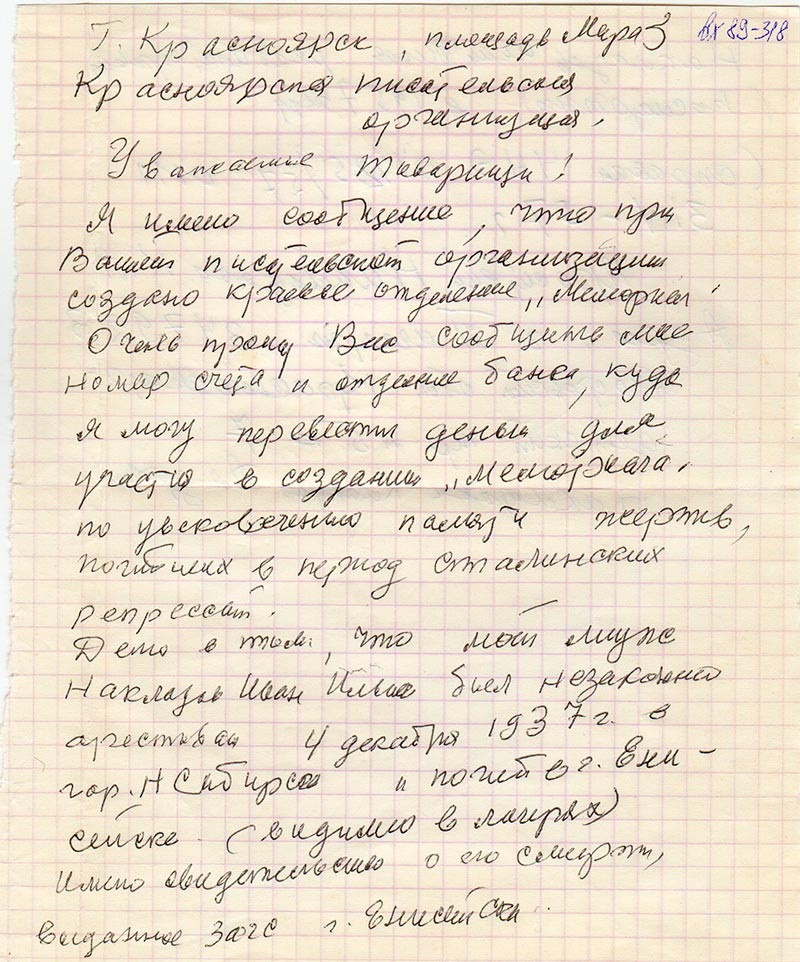 Вх 89-318
г. Красноярск, площадь Мира 3
Красноярская писательская
организация.
Уважаемые товарищи!
Я имею сообщение, что при
Вашей писательской организации
создано краевое отделение „Мемориал"
Очень прошу Вас сообщить мне
номер счета и отделение банка, куда
я могу перевести деньги для
участия в создании „Мемориала"
по увековечению памяти жертв,
погибших в период сталинских
репрессий.
Дело в том, что мой муж
Иван Ильич был незаконно
арестован 4 декабря 1937 г. в
гор. НСибирске и погиб в г. Ени-
сейске (видимо в лагерях)
Имею свидетельство о его смерти,
выданное Загс г. Енисейска.